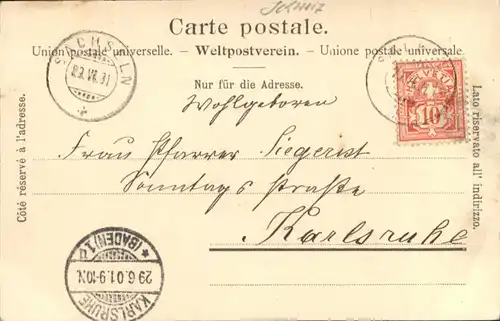 SCHWEIZ
Carte postale.
Union postale universelle. – Weltpostverein. – Unione postale universale.
SACHSELN
Nur für die Adresse.
HELVETIA
10
Wohlgeboren
Frau Pfarrer Siegrist
Sonntags straße
Karlsruhe
Côté réservé à l'adresse.
Lato riservato all' indirizzo.
KARLSRUHE
29.6.01.9-10N.
* (BADEN) 1